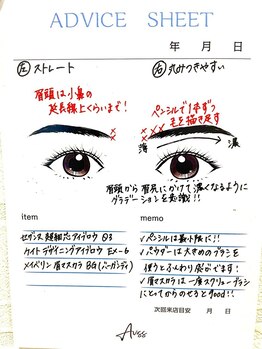 ADVICE SHEET
年 月 日
左 ストレート
右 丸みつきやすい
眉頭は小鼻の
延長線上くらいまで!
ペンシルで1本ずつ
毛を描き足す
薄 濃
眉頭から眉尻にかけて濃くなるように
グラデーションを意識!!
item
memo
セザンヌ 超細芯アイブロウ 03
ケイト デザイニングアイブロウ EX-6
メイベリン 眉マスカラ BG(バーガンディ)
✓ペンシルは最小限に!!
✓パウダーは大きめのブラシを
使うとふんわり感がでます!
✓眉マスカラは一度スクリューブラシ
にとってからのせるとgood!!
次回来店目安 月 日
Auss